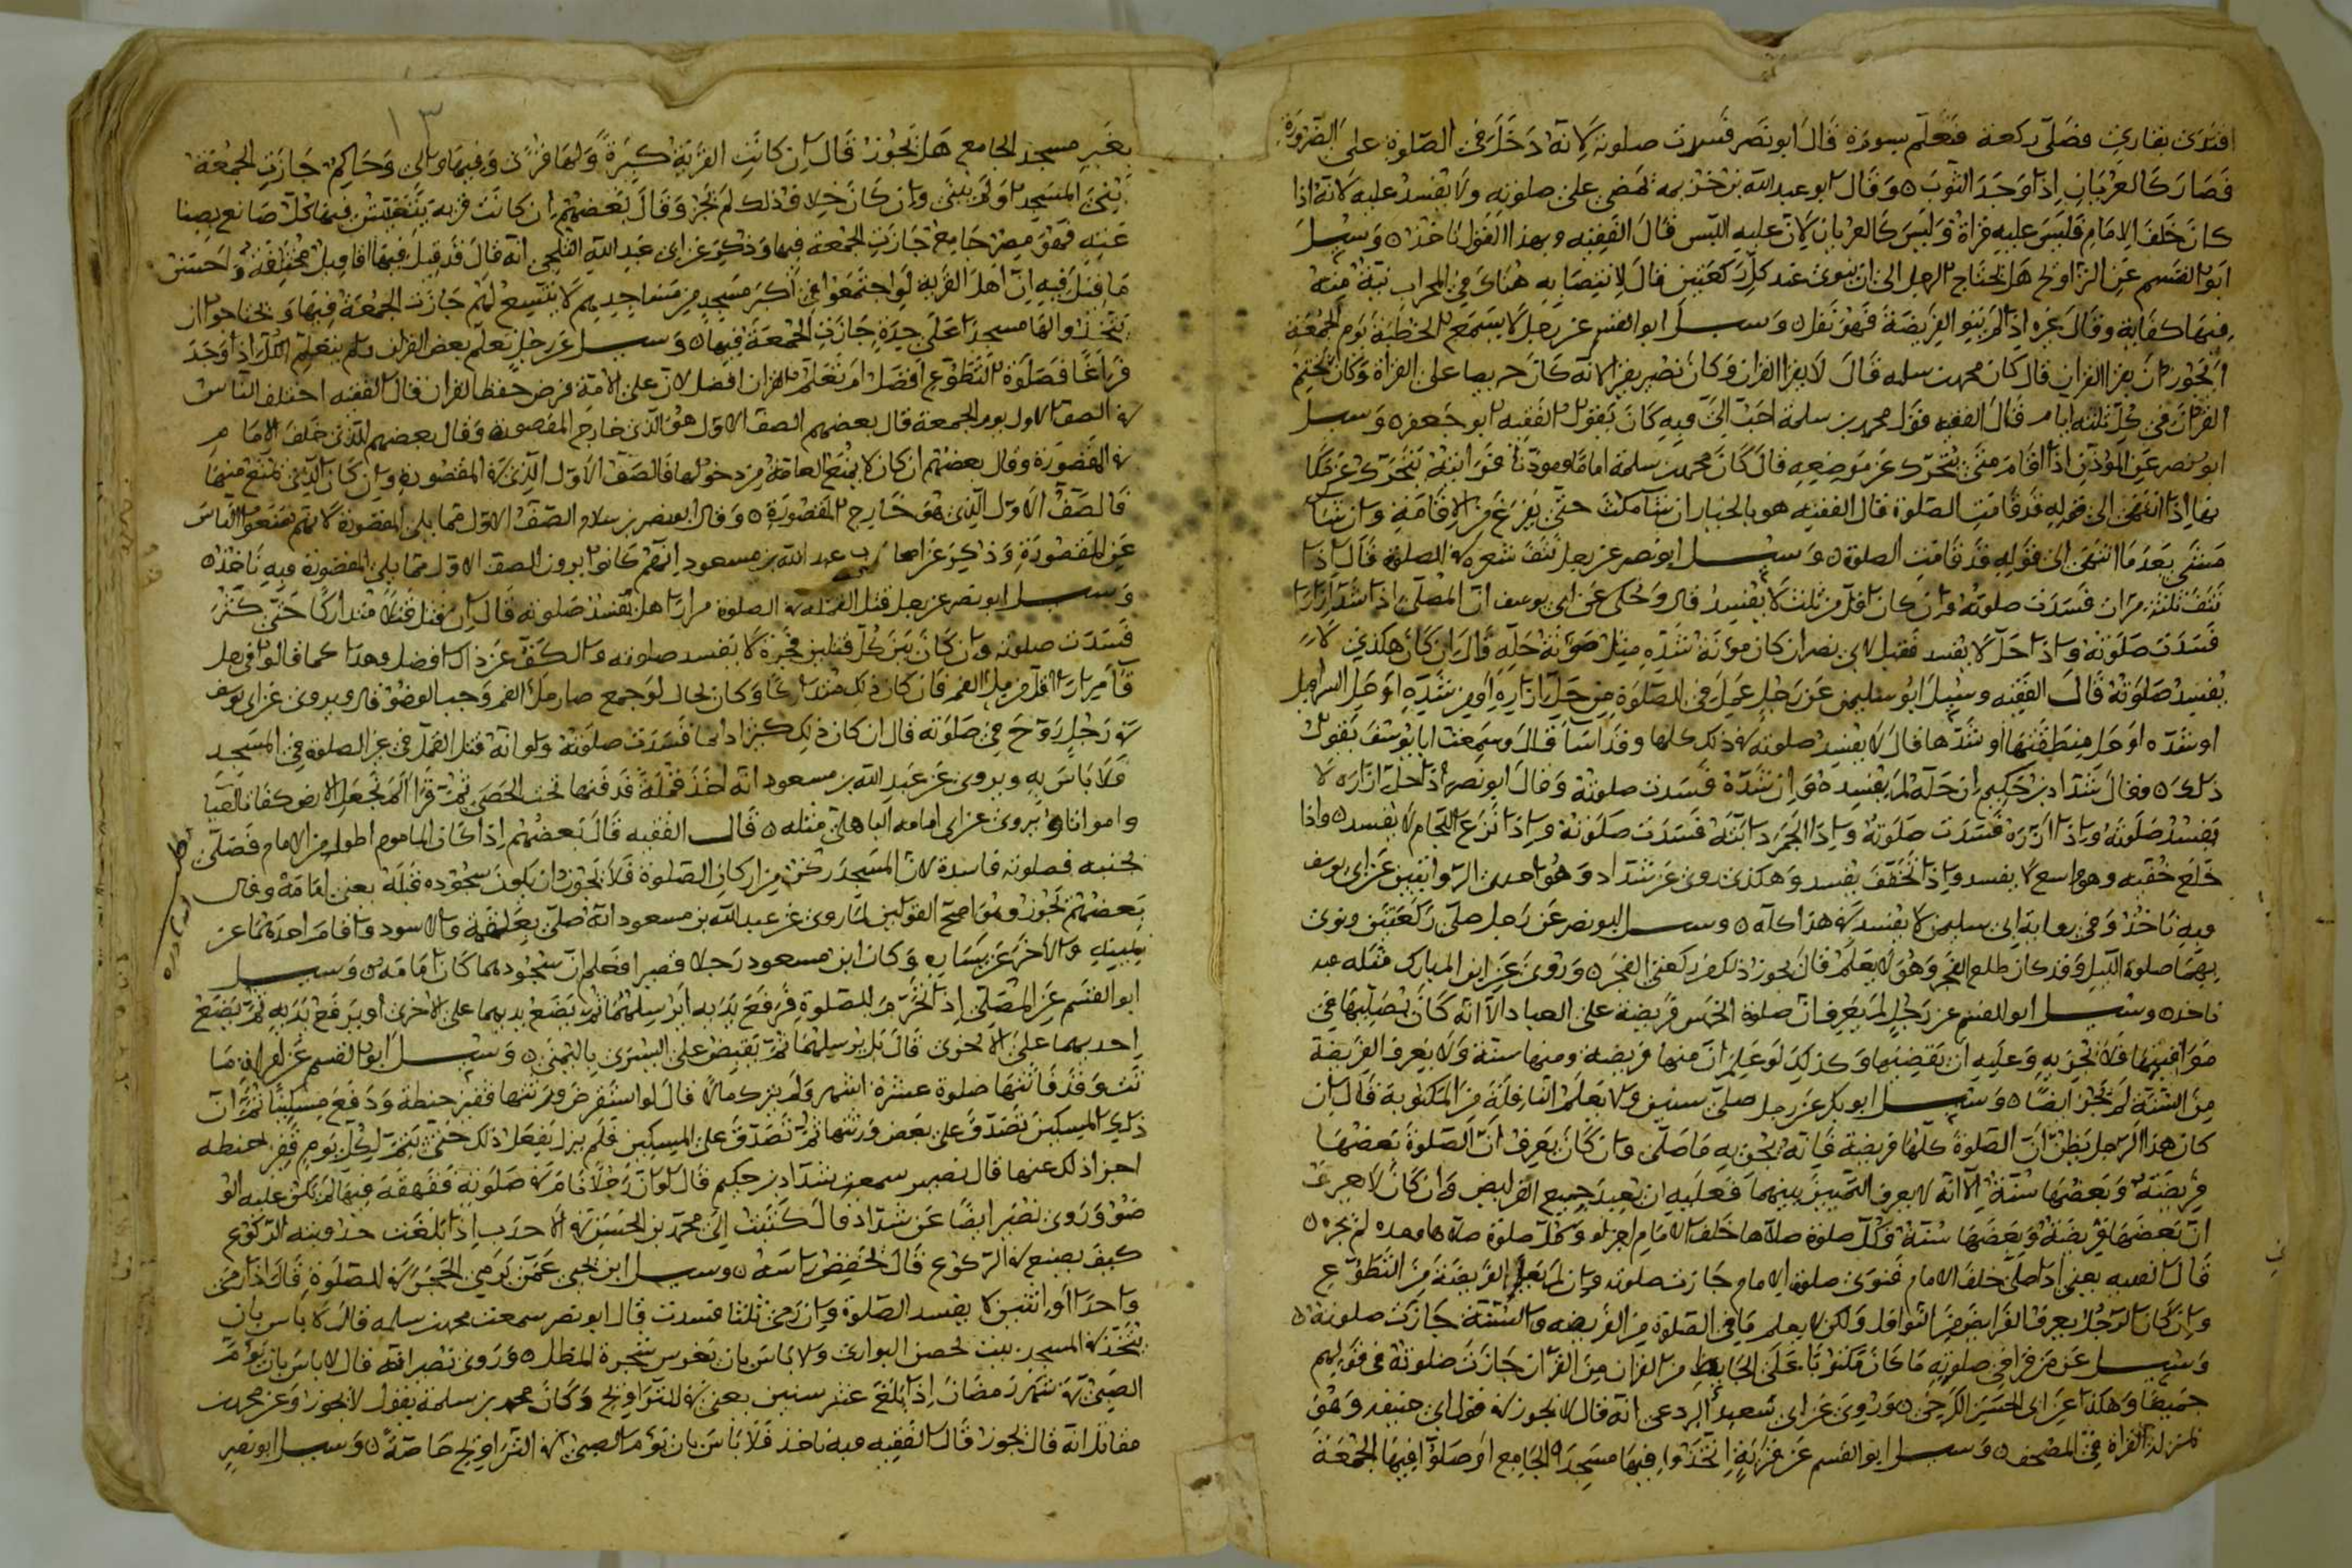 اقتدى بقارئ فصلى ركعة فتعلم سورة قال ابو نصر فسدت صلوته لانه دخل في الصلوة على الضرورة
فصار كالعريان اذا وجد الثوب وقال ابو عبد الله بن خزيمه يمضي على صلوته ولا يفسد عليه لانه اذا
كان خلف الامام فليس عليه قراة وليس كالعريان لان عليه اللبس قال الفقيه وبهذا القول ناخذ وسيل
ابو القسم عن التراويح هل يحتاج الرجل الى ان ينوى عند كل ركعتين قال لا نيته
فيها كفاية وقال غيره اذا لم ينو الفريضة فهو نفل وسيل ابو القسم عن رجل لا يسمع الخطبة يوم الجمعة
ايجوز ان يقرا القران قال كان محمد بن سلمه قال لا يقرا القران وكان نصير يقرا لانه كان حريصا على القراة وكان يختم
القران في كل ثلثه ايام قال الفقيه قول محمد بن سلمة احب الي وبه كان يقول الفقيه ابو جعفر وسيل
ابو نصر عن الموذن اذا اقام متى يتحرك عن موضعه قال كان محمد بن سلمة اماما وموذنا
اذا انتهى الى قوله قد قامت الصلوة قال الفقيه هو بالخيار ان شا مكث حتى يفرغ من الاقامة وان شا
مشى بعد ما انتهى الى قوله قد قامت الصلوة وسيل ابو نصر عن رجل نتف شعره في الصلوة قال اذا
نتف ثلث مرات فسدت صلوته وان كان اقل من ثلث لا يفسد قال وحكى عن ابى يوسف ان المصلى اذا شد ازاره
فسدت صلوته واذا حل لا يفسد فقيل لابى نصر ان كان مونة شده مثل مونة حله قال ان كان هكذى لا
يفسد صلوته قال الفقيه وسيل ابو سليمن عن رجل عمل في الصلوة من حل ازاره او من شده او حل السراويل
او شده او حل منطقتها او شدها قال لا يفسد صلوته في ذلك كلها وقد اسا قال وسمعت ابا يوسف يقول
ذلك وقال شداد بن حكيم ان حله لم يفسده وان شده فسدت صلوته وقال ابو نصر اذا حل ازاره لا
يفسد صلوته واذا ازره فسدت صلوته واذا الجم دابته فسدت صلوته واذا نزع اللجام لا يفسد واذا
خلع خفيه وهو واسع لا يفسد واذا تخفف يفسد وهكذى روى عن شداد وهو احدى الروايتين عن ابى يوسف
وبه ناخذ وفى رواية ابى سليمن لا يفسد في هذا كله وسيل ابو نصر عن رجل صلى ركعتين ونوى
بهما صلوة الليل وقد كان طلع الفجر وهو لا يعلم قال يجوز ذلك من ركعتي الفجر وروى عن ابن المبارك مثله وبه
ناخذ وسيل ابو القسم عن رجل لم يعرف ان صلوة الخمس فريضة على العباد الا انه كان يصليها في
مواقيتها قال لا يجزيه وعليه ان يقضيها وكذلك لو علم ان منها فريضة ومنها سنة ولا يعرف الفريضة
من السنة لم يجز ايضا وسيل ابو بكر عن رجل صلى سنين ولا يعلم النافلة من المكتوبة قال ان
كان هذا الرجل يظن ان الصلوة كلها فريضة فانه يجزيه ما صلى وان كان يعرف ان الصلوة بعضها
فريضة وبعضها سنة الا انه لا يعرف التمييز بينهما فعليه ان يعيد جميع الفرايض وان كان لا يعرف
ان بعضها فريضة وبعضها سنة وكل صلوة صلاها خلف الامام اجزاه وكل صلوة صلاها وحده لم يجزه
قال الفقيه يعنى اذا صلى خلف الامام فنوى صلوة الامام جازت صلوته وان لم يعلم الفريضة من التطوع
وان كان الرجل يعرف الفرايض من النوافل ولكن لا يعلم ما في الصلوة من الفريضه والسنة جازت صلوته
وسيل عن من قرا في صلوته ما كان مكتوبا على الحايط من القران جازت صلوته في قوليهم
جميعا وهكذا عن ابى الحسن الكرخى وروى عن ابى سعيد البردعى انه قال لا يجوز في قول ابى حنيفه وهو
بمنزلة القراة من المصحف وسيل ابو القسم عن قرية اتخذوا فيها مسجد الجامع او صلوا فيها الجمعة
بغير مسجد الجامع هل يجوز قال ان كانت القرية كبيرة ولها قرى وفيها والى وحاكم جازت الجمعة
بنى المسجد او لم يبنى وان كان خلاف ذلك لم يجز وقال بعضهم ان كانت قرية يتعيش فيها كل صانع بصناعته
فهو مصر جامع جازت الجمعة فيها وذكر عن ابى عبد الله الثلجى انه قال قد قيل فيها اقاويل مختلفة واحسن
ما قيل فيه ان اهل القرية لو اجتمعوا في اكبر مسجد من مساجدهم لا يتسع لهم جازت الجمعة فيها ويحتاجوا ان
يتخذوا لها مسجدا على حدة جازت الجمعة فيها وسيل عن رجل تعلم بعض القران ولم يتعلم الكل اذا وجد
فراغا فصلوة التطوع افضل ام تعلم القران قال تعلم القران افضل لان على الامة فرض حفظ القران قال الفقيه اختلف الناس
في الصف الاول يوم الجمعة قال بعضهم الصف الاول هو الذى خارج المقصورة وقال بعضهم الذى خلف الامام
في المقصورة وقال بعضهم ان كان لا يمنع العامة من دخولها فالصف الاول الذى في المقصورة وان كان الذى يمنع منها
فالصف الاول الذى هو خارج المقصورة وقال ابو نصر بن سلام الصف الاول مما يلى المقصورة لانهم يمنعوا الناس
عن المقصورة وذكر عن اصحاب عبد الله بن مسعود انهم كانوا يرون الصف الاول مما يلى المقصورة وبه ناخذ
وسيل ابو نصر عن رجل قتل القملة في الصلوة مرارا هل تفسد صلوته قال ان قتل قتلا متداركا حتى كثر
فسدت صلوته وان كان بين كل قتلين فجرة لا يفسد صلوته والكف عن ذلك افضل وهذا كما قالوا في رجل
قا مرارا اقل من ملء الفم فان كان ذلك متداركا وكان بحال لو جمع صار ملء الفم وجب الوضو قال ويروى عن ابى يوسف
في رجل روح في صلوته قال ان كان ذلك كثيرا دايما فسدت صلوته ولو انه قتل القمل في غير الصلوة في المسجد
فلا باس به ويروى عن عبد الله بن مسعود انه اخذ قملة فدفنها تحت الحصى ثم قرا الم نجعل الارض كفاتا احيا
وامواتا ويروى عن ابى امامه الباهلى مثله قال الفقيه قال بعضهم اذا كان الماموم اطول من الامام فصلى
بجنبه فصلوته فاسدة لان المسجد ركن من اركان الصلوة فلا يجوز ان يكون سجوده قبله يعنى امامه وقال
بعضهم يجوز وهو اصح القولين لما روى عن عبد الله بن مسعود انه صلى بعلقمة والاسود واقام احدهما عن
يمينه والاخر عن يساره وكان ابن مسعود رجلا قصيرا فعلم ان سجودهما كان امامه وسيل
ابو القسم عن المصلى اذا تحرم للصلوة فرفع يديه ايرسلهما ثم يضع يديهما على الاخرى او يرفع يديه ثم يضع
احديهما على الاخرى قال بل يرسلهما ثم يقبض على اليسرى باليمنى وسيل ابو القسم عن امراة ما
تت وقد فاتتها صلوة عشرة اشهر ولم يترك مالا قال لو استقرض ورثتها قفيز حنطة ودفع مسكينا ثم ان
ذلك المسكين تصدق على بعض ورثتها ثم تصدق على المسكين فلم يزل يفعل ذلك حتى يتم لكل يوم قفيز حنطه
اجزا ذلك عنها قال نصير سمعت شداد بن حكيم قال لو ان رجلا نام في صلوته فقهقه فيها لم يكن عليه الو
ضو وروى نصير ايضا عن شداد قال كتبت الى محمد بن الحسن في الاحدب اذا بلغت حدوبته الركوع
كيف يصنع في الركوع قال يخفض راسه وسيل ابن يحيى عمن يرمى الحجر في الصلوة قال اذا رمى
واحدا او اثنتين لا يفسد الصلوة وان رمى ثلثا فسدت قال ابو نصر سمعت محمد بن سلمه قال لا باس بان
يتخذ في المسجد بيت لحصن البوارى ولا باس بان يغرس شجرة للظل وروى نصير انه قال لا باس بان يوم
الصبى في شهر رمضان اذا بلغ عشر سنين يعنى في التراويح وكان محمد بن سلمة يقول لا يجوز وعن محمد بن
مقاتل انه قال يجوز قال الفقيه وبه ناخذ فلا باس بان يوم الصبى في التراويح خاصة وسيل ابو نصر